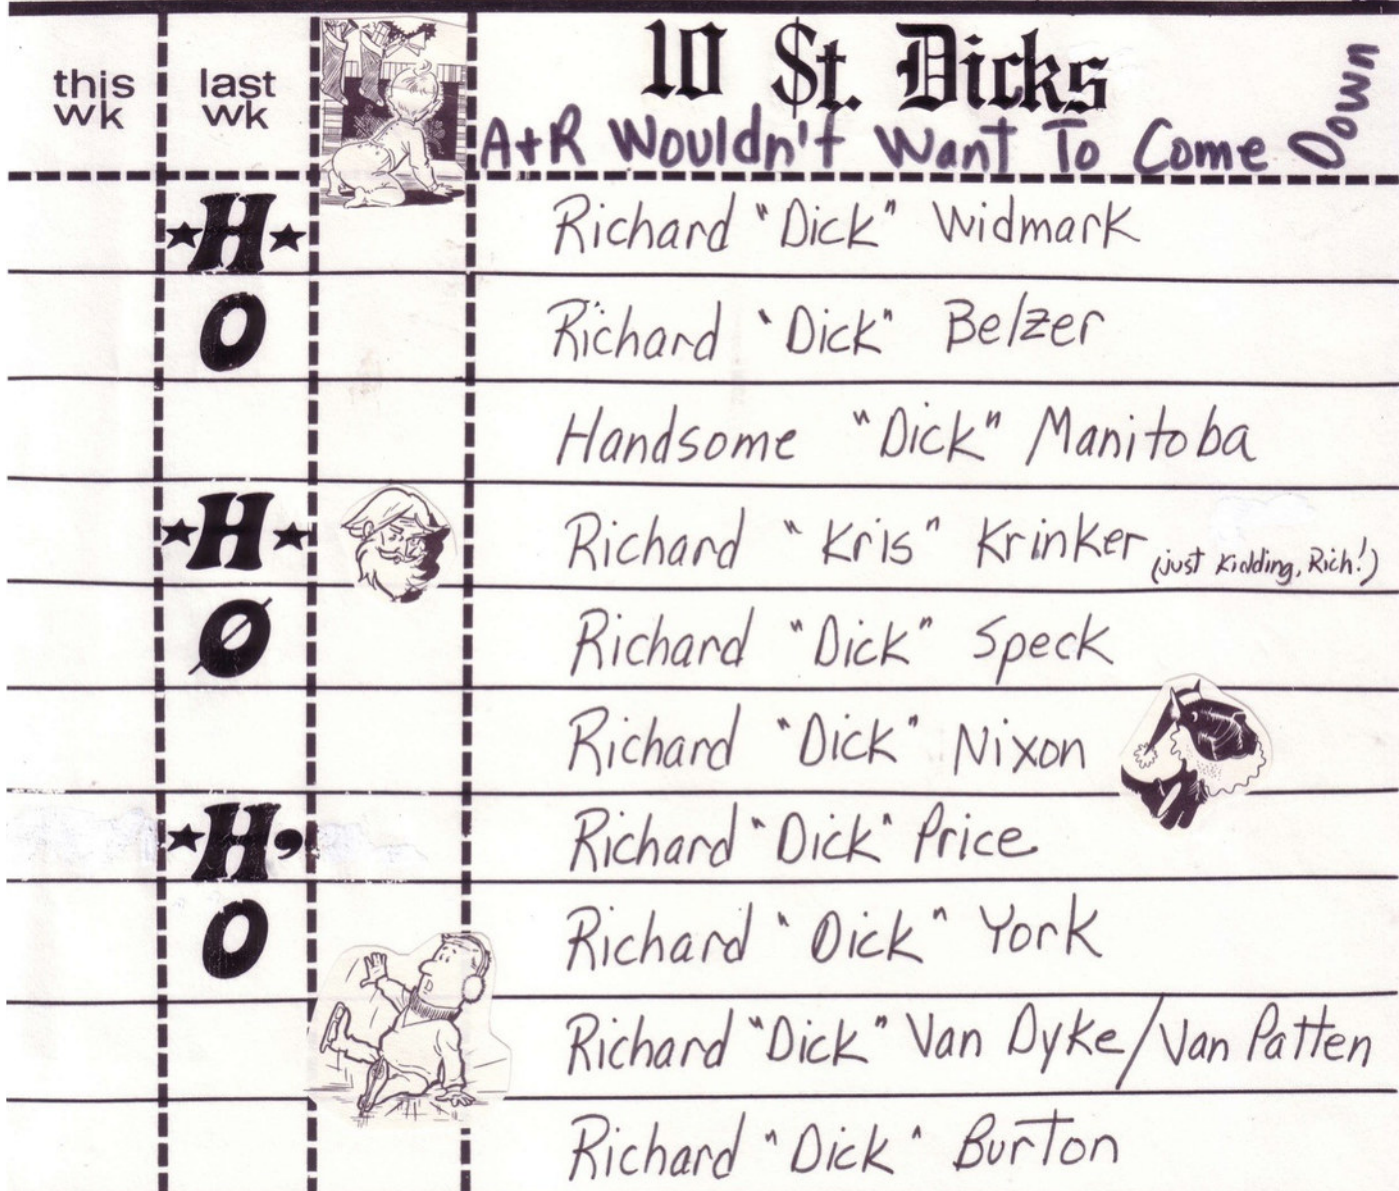 this wk last wk 10 $t. Dicks
A+R Wouldn't Want To Come Down
★H★ Richard "Dick" Widmark
O Richard "Dick" Belzer
Handsome "Dick" Manitoba
★H★ Richard "Kris" Krinker (just Kidding, Rich!)
Ø Richard "Dick" Speck
Richard "Dick" Nixon
★H, Richard "Dick" Price
O Richard "Dick" York
Richard "Dick" Van Dyke/Van Patten
Richard "Dick" Burton